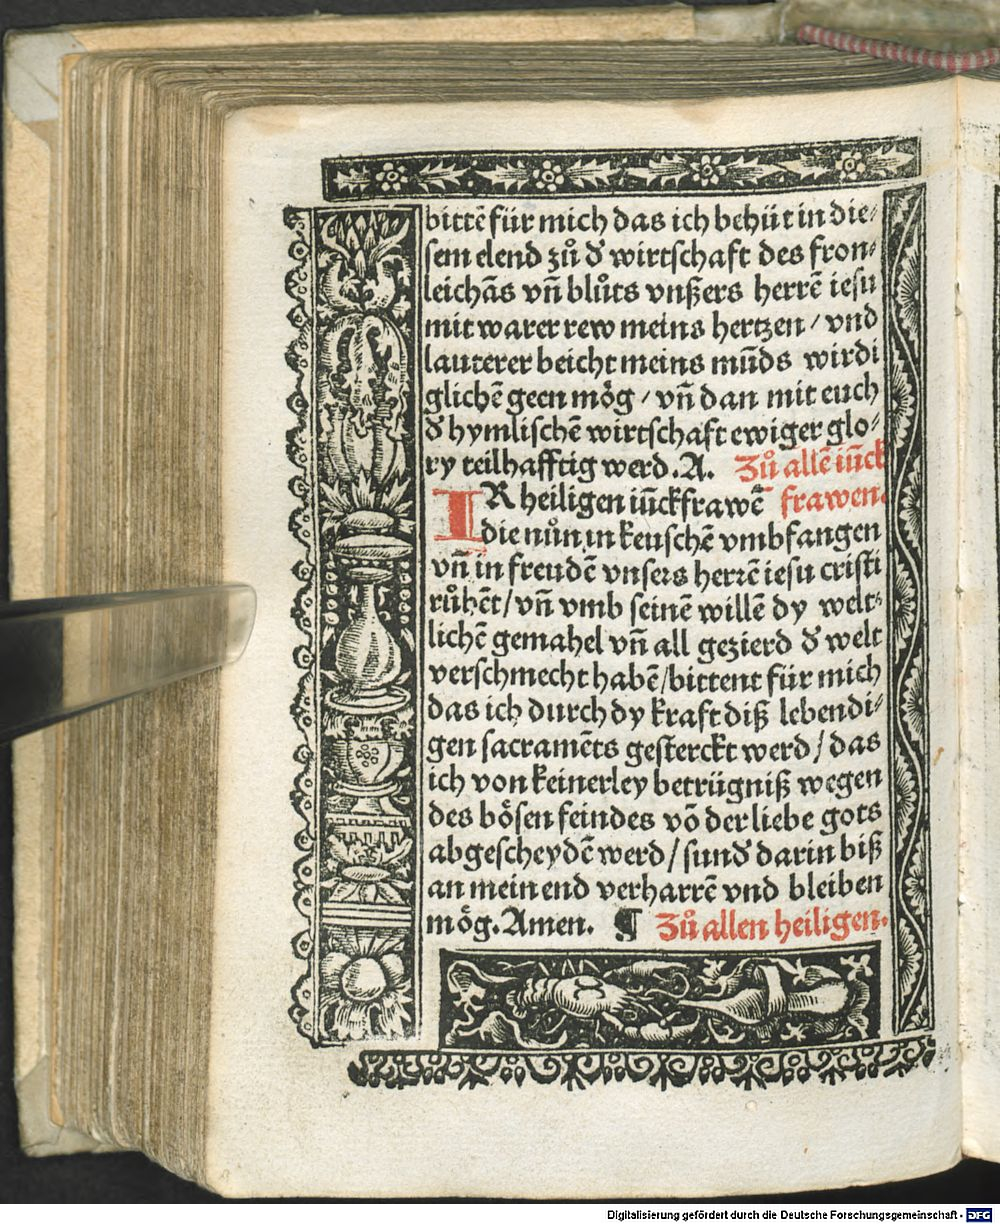 bittẽ für mich das ich behüt in die⸗
sem elend zů d̕ wirtschaft des fron⸗
leichãs vñ blůts vnßers herrẽ iesu
mit warer rew meins hertzen / vnd
lauterer beicht meins mũds wirdi
glichẽ geen mög / vñ dan mit euch
d̕ hymlischẽ wirtschaft ewiger glo⸗
ry teilhafftig werd. A. Zů allẽ iũck
IR heiligen iũckfrawẽ frawen.
die nůn in keuschẽ vmbfangen
vñ in freudẽ vnsers herrẽ iesu cristi
růhẽt / vñ vmb seinẽ willẽ dy welt⸗
lichẽ gemahel vñ all gezierd d̕ welt
verschmecht habẽ / bittent für mich
das ich durch dy kraft diß lebendi⸗
gen sacramẽts gesterckt werd / das
ich von keinerley betrügniß wegen
des bösen feindes võ der liebe gots
abgescheydẽ werd / sund̕ darin biß
an mein end verharrẽ vnd bleiben
mög. Amen. ¶ Zů allen heiligen.
Digitalisierung gefördert durch die Deutsche Forschungsgemeinschaft - DFG